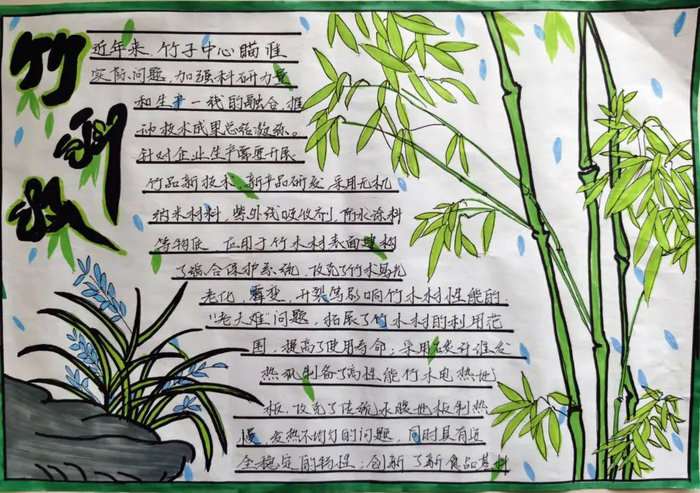 竹
近年来,竹子中心瞄准
实际问题,加强科研力量
和生产一线的融合,推
动技术成果总结凝练。
针对企业生产需要开展
竹品新技术、新产品研发,采用无机
纳米材料,紫外线吸收剂,防水涂料
等物质,应用于竹木材表面,建构
了 复合保护系统,攻克了竹木易光
老化,霉变,开裂等影响竹木材性能的
"老大难"问题,拓展了竹木材的利用范
围,提高了使用寿命;采用 发
热 制备了高性能竹木电热地
板,攻克了传统水暖地板制热
慢,发热不均匀的问题,同时具有
全稳定的特性;创新了新食品